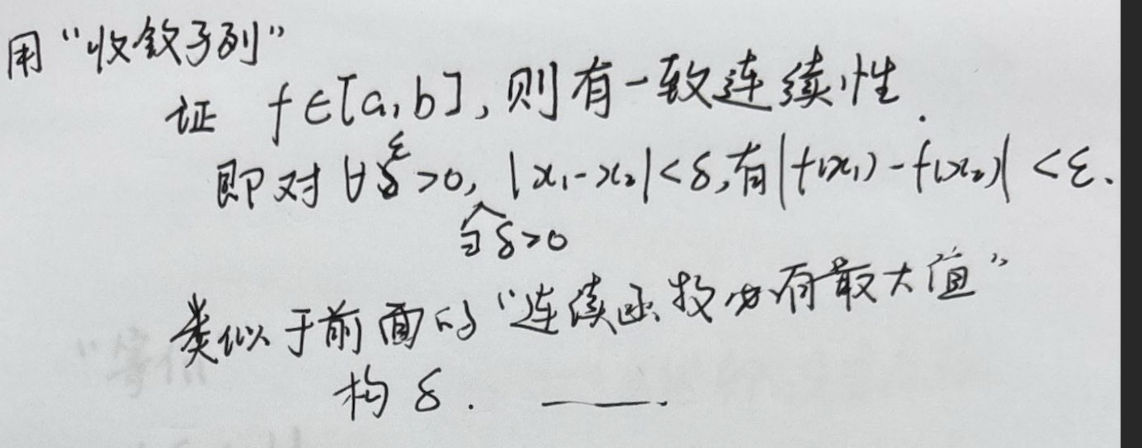 用“收敛子列”
证 f∈[a,b], 则有一致连续性.
即对 ∀ε>0, ∃δ>0 |x₁-x₂|<δ, 有|f(x₁)-f(x₂)|<ε.
类似于前面的“连续函数必有最大值”
构δ. ——.